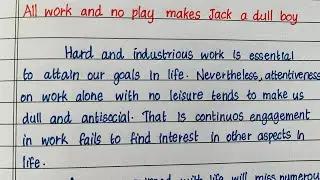 All work and no play makes Jack a dull boy
Hard and industrious work is essential
to attain our goals in life. Nevertheless, attentiveness
on work alone with no leisure tends to make us
dull and antisocial. That is continuos engagement
in work fails to find interest in other aspects in
life.
with life will miss numerous